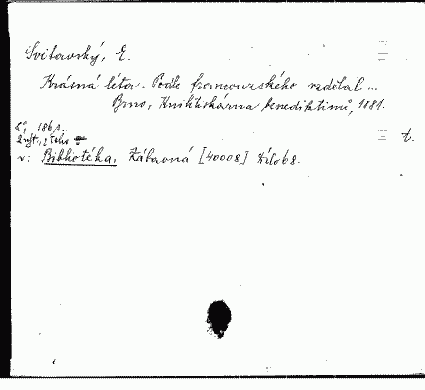 Svitavský, E.
Krásná léta. Podle francouzského vzdělal ...
Brno, Knihtiskárna benediktinů, 1881.
8°, 186 s.
t.
v: Bibliotéka, Zábavná [40008] Dílo 68.